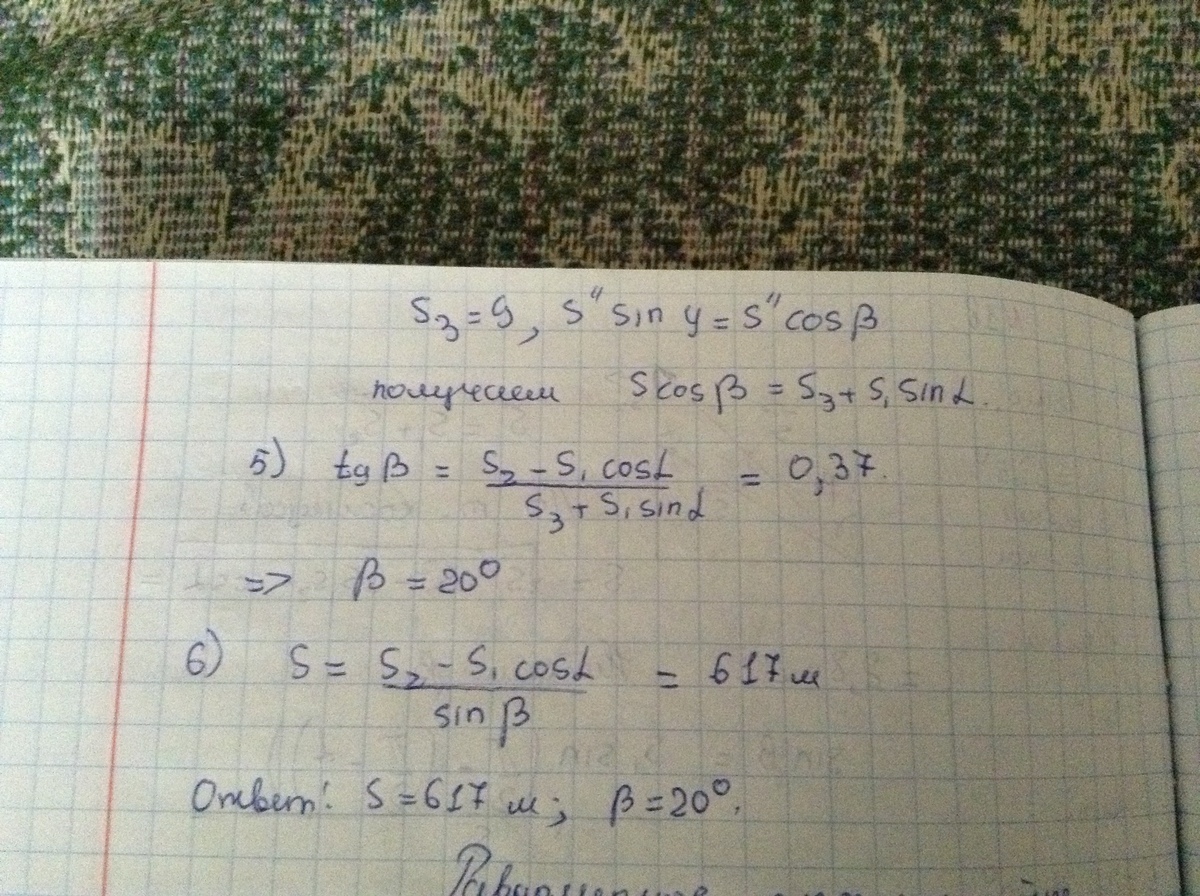 S₃ = 9, S" sin γ = S" cos β
получаем S cos β = S₃ + S₁ sin α.
5) tg β = (S₂ - S₁ cos α) / (S₃ + S₁ sin α) = 0,37.
=> β = 20°
6) S = (S₂ - S₁ cos α) / sin β = 617 м
Ответ: S = 617 м; β = 20°.